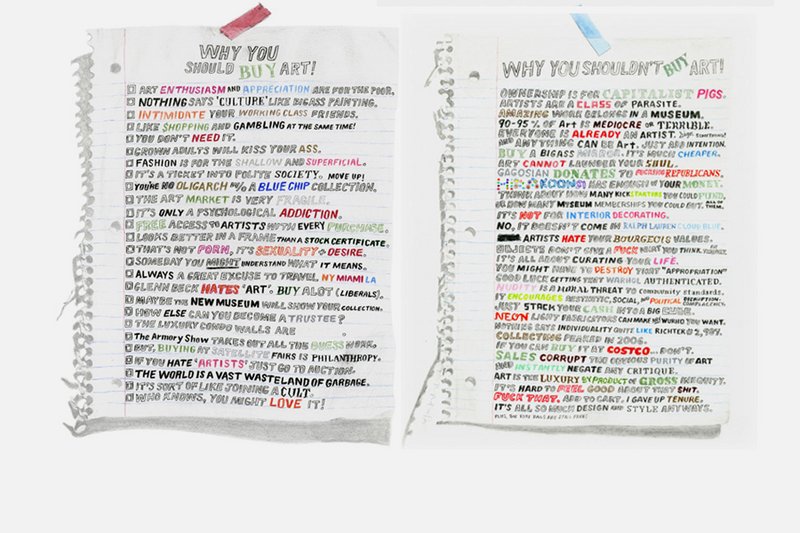 WHY YOU
SHOULD BUY ART!
ART ENTHUSIASM AND APPRECIATION ARE FOR THE POOR.
NOTHING SAYS 'CULTURE' LIKE BIGASS PAINTING.
INTIMIDATE YOUR WORKING CLASS FRIENDS.
LIKE SHOPPING AND GAMBLING AT THE SAME TIME!
YOU DON'T NEED IT.
GROWN ADULTS WILL KISS YOUR ASS.
FASHION IS FOR THE SHALLOW AND SUPERFICIAL.
IT'S A TICKET INTO POLITE SOCIETY. MOVE UP!
YOU'RE NO OLIGARCH W/O A BLUE CHIP COLLECTION.
THE ART MARKET IS VERY FRAGILE.
IT'S ONLY A PSYCHOLOGICAL ADDICTION.
FREE ACCESS TO ARTISTS WITH EVERY PURCHASE.
LOOKS BETTER IN A FRAME THAN A STOCK CERTIFICATE.
THAT'S NOT PORN, IT'S SEXUALITY + DESIRE.
SOMEDAY YOU MIGHT UNDERSTAND WHAT IT MEANS.
ALWAYS A GREAT EXCUSE TO TRAVEL. NY MIAMI LA
GLENN BECK HATES 'ART'. BUY ALOT (LIBERALS).
MAYBE THE NEW MUSEUM WILL SHOW YOUR COLLECTION.
HOW ELSE CAN YOU BECOME A TRUSTEE?
THE LUXURY CONDO WALLS ARE
The Armory Show TAKES OUT ALL THE GUESS WORK.
BUT, BUYING AT SATELLITE FAIRS IS PHILANTHROPY.
IF YOU HATE 'ARTISTS' JUST GO TO AUCTION.
THE WORLD IS A VAST WASTELAND OF GARBAGE.
IT'S SORT OF LIKE JOINING A CULT.
WHO KNOWS, YOU MIGHT LOVE IT!
WHY YOU SHOULDN'T BUY ART!
OWNERSHIP IS FOR CAPITALIST PIGS.
ARTISTS ARE A CLASS OF PARASITE.
AMAZING WORK BELONGS IN A MUSEUM.
90-95% OF Art IS MEDIOCRE OR TERRIBLE.
EVERYONE IS ALREADY AN ARTIST.
AND ANYTHING CAN BE Art. JUST ADD INTENTION.
BUY A BIGASS MIRROR. IT'S MUCH CHEAPER.
ART CANNOT LAUNDER YOUR SOUL.
GAGOSIAN DONATES TO FUCKING REPUBLICANS.
HAS ENOUGH OF YOUR MONEY.
THINK ABOUT HOW MANY KICKSTARTERS YOU COULD FUND,
OR HOW MANY MUSEUM MEMBERSHIPS YOU COULD BUY. ALL OF THEM.
IT'S NOT FOR INTERIOR DECORATING.
NO, IT DOESN'T COME IN RALPH LAUREN CLOUD BLUE.
ARTISTS HATE YOUR BOURGEOIS VALUES.
OBJECTS DON'T GIVE A FUCK WHAT YOU THINK.
IT'S ALL ABOUT CURATING YOUR LIFE.
YOU MIGHT HAVE TO DESTROY THAT "APPROPRIATION"
GOOD LUCK GETTING THEY WARHOL AUTHENTICATED.
NUDITY IS A THREAT TO community standards.
IT ENCOURAGES AESTHETIC, SOCIAL, AND POLITICAL
JUST STACK YOUR CASH INTO A BIG CUBE.
NEON LIGHT FABRICATORS CAN MAKE YOU WORHD YOU WANT.
NOTHING SAYS INDIVIDUALITY QUITE LIKE RICHTER
COLLECTING PEAKED IN 2006.
IF YOU CAN BUY IT AT COSTCO... DON'T.
SALES CORRUPT THE PURITY OF ART
AND INSTANTLY NEGATE ANY CRITIQUE.
ART IS THE LUXURY BYPRODUCT OF GROSS INEQUITY.
IT'S HARD TO FEEL GOOD ABOUT THAT SH*T.
FUCK THAT. ADD TO CART. I GAVE UP TENURE.
IT'S ALL SO MUCH DESIGN AND STYLE ANYWAYS.